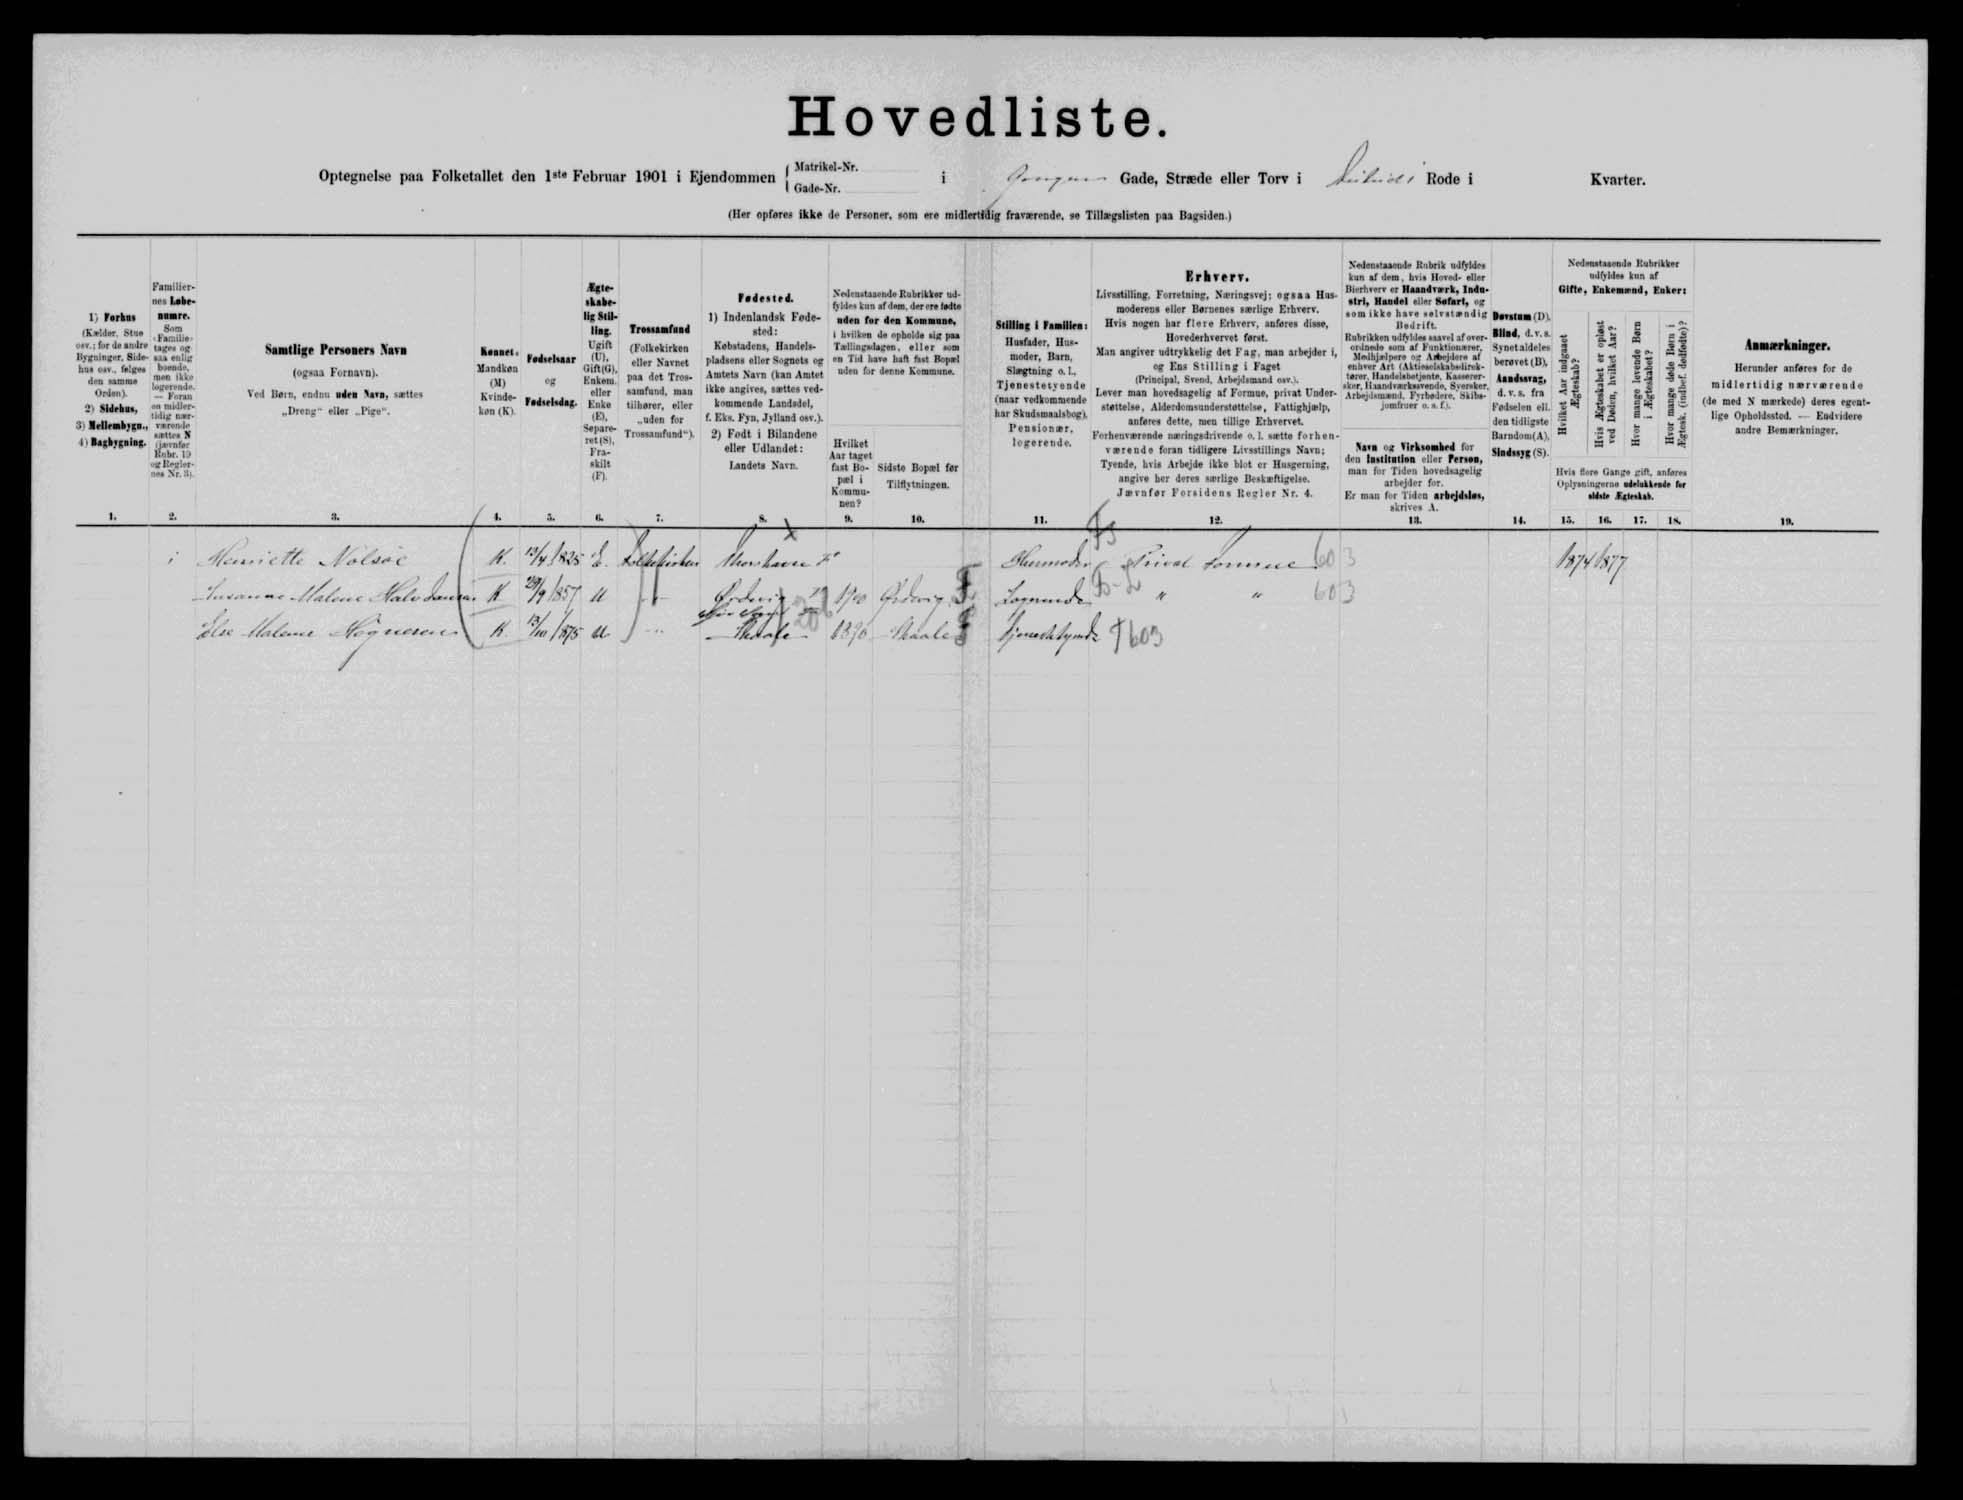 Hovedliste.
Optegnelse paa Folketallet den 1ste Februar 1901 i Ejendommen { Matrikel-Nr. Gade-Nr. i Gongen Gade, Stræde eller Torv i Rode i Kvarter.
(Her opføres ikke de Personer, som ere midlertidig fraværende, se Tillægslisten paa Bagsiden.)
1) Forhus
(Kælder, Stue
osv.; for de andre
Bygninger, Side-
hus osv., følges
den samme
Orden).
2) Sidehus,
3) Mellembygn.,
4) Bagbygning.
Familier-
nes Løbe-
numre.
Som
»Familie»
tages og-
saa enlig
boende,
men ikke
logerende.
— Foran
en midler-
tidig nær-
værende
sættes N
(jævnfør
Rubr. 19
og Regler-
nes Nr. 3).
Samtlige Personers Navn
(ogsaa Fornavn).
Ved Børn, endnu uden Navn, sættes
„Dreng“ eller „Pige“.
Kønnet:
Mandkøn
(M)
Kvinde-
køn (K).
Fødselsaar
og
Fødselsdag.
Ægte-
skabe-
lig Stil-
ling.
Ugift
(U),
Gift(G),
Enkem.
eller
Enke
(E),
Separe-
ret (S),
Fra-
skilt
(F).
Trossamfund
(Folkekirken
eller Navnet
paa det Tros-
samfund, man
tilhører, eller
„uden for
Trossamfund“).
Fødested.
1) Indenlandsk Føde-
sted:
Købstadens, Handels-
pladsens eller Sognets og
Amtets Navn (kan Amtet
ikke angives, sættes ved-
kommende Landsdel,
f. Eks. Fyn, Jylland osv.).
2) Født i Bilandene
eller Udlandet:
Landets Navn.
Nedenstaaende Rubrikker ud-
fyldes kun af dem, der ere fødte
uden for den Kommune,
i hvilken de opholde sig paa
Tællingsdagen, eller som
en Tid have haft fast Bopæl
uden for denne Kommune.
Hvilket
Aar taget
fast Bo-
pæl i
Kommu-
nen?
Sidste Bopæl før
Tilflytningen.
Stilling i Familien:
Husfader, Hus-
moder, Barn,
Slægtning o. l.,
Tjenestetyende
(naar vedkommende
har Skudsmaalsbog),
Pensionær,
logerende.
Erhverv.
Livsstilling, Forretning, Næringsvej; ogsaa Hus-
moderens eller Børnenes særlige Erhverv.
Hvis nogen har flere Erhverv, anføres disse,
Hovederhvervet først.
Man angiver udtrykkelig det Fag, man arbejder i,
og Ens Stilling i Faget
(Principal, Svend, Arbejdsmand osv.).
Lever man hovedsagelig af Formue, privat Under-
støttelse, Alderdomsunderstøttelse, Fattighjælp,
anføres dette, men tillige Erhvervet.
Forhenværende næringsdrivende o. l. sætte forhen-
værende foran tidligere Livsstillings Navn;
Tyende, hvis Arbejde ikke blot er Husgerning,
angive her deres særlige Beskæftigelse.
Jævnfør Forsidens Regler Nr. 4.
Nedenstaaende Rubrik udfyldes
kun af dem, hvis Hoved- eller
Bierhverv er Haandværk, Indu-
stri, Handel eller Søfart, og
som ikke have selvstændig
Bedrift.
Rubrikken udfyldes saavel af over-
ordnede som af Funktionærer,
Medhjælpere og Arbejdere af
enhver Art (Aktieselskabsdirek-
tører, Handelsbetjente, Kasserer-
sker, Haandværkssvende, Syersker,
Arbejdsmænd, Fyrbødere, Skibs-
jomfruer o. s. f.).
Navn og Virksomhed for
den Institution eller Person,
man for Tiden hovedsagelig
arbejder for.
Er man for Tiden arbejdsløs,
skrives A.
Døvstum (D),
Blind, d. v. s.
Synet aldeles
berøvet (B),
Aandssvag,
d. v. s. fra
Fødselen ell.
den tidligste
Barndom(A),
Sindssyg (S).
Nedenstaaende Rubrikker
udfyldes kun af
Gifte, Enkemænd, Enker:
Hvilket Aar indgaaet
Ægteskab?
Hvis Ægteskabet er opløst
ved Døden, hvilket Aar?
Hvor mange levende Børn
i Ægteskabet?
Hvor mange døde Børn i
Ægtesk. (indbef. dødfødte)?
Hvis flere Gange gift, anføres
Oplysningerne udelukkende for
sidste Ægteskab.
Anmærkninger.
Herunder anføres for de
midlertidig nærværende
(de med N mærkede) deres egent-
lige Opholdssted. — Endvidere
andre Bemærkninger.
1. 2. 3. 4. 5. 6. 7. 8. 9. 10. 11. 12. 13. 14. 15. 16. 17. 18. 19.
1 Henriette Nolsøe K. 13/4 1825 E. Folkekirken Thorshavn F Husmoder Privat Formue 603 1874 1877
Susanne Malene Halvdansen K 29/9 1857 U " Ørdevig 1900 Ørdevig Logerende " " 603
Else Malene Høgnesen K. 13/10 1875 U " Skaale 1890 Skaale Tjenestetyende T 603